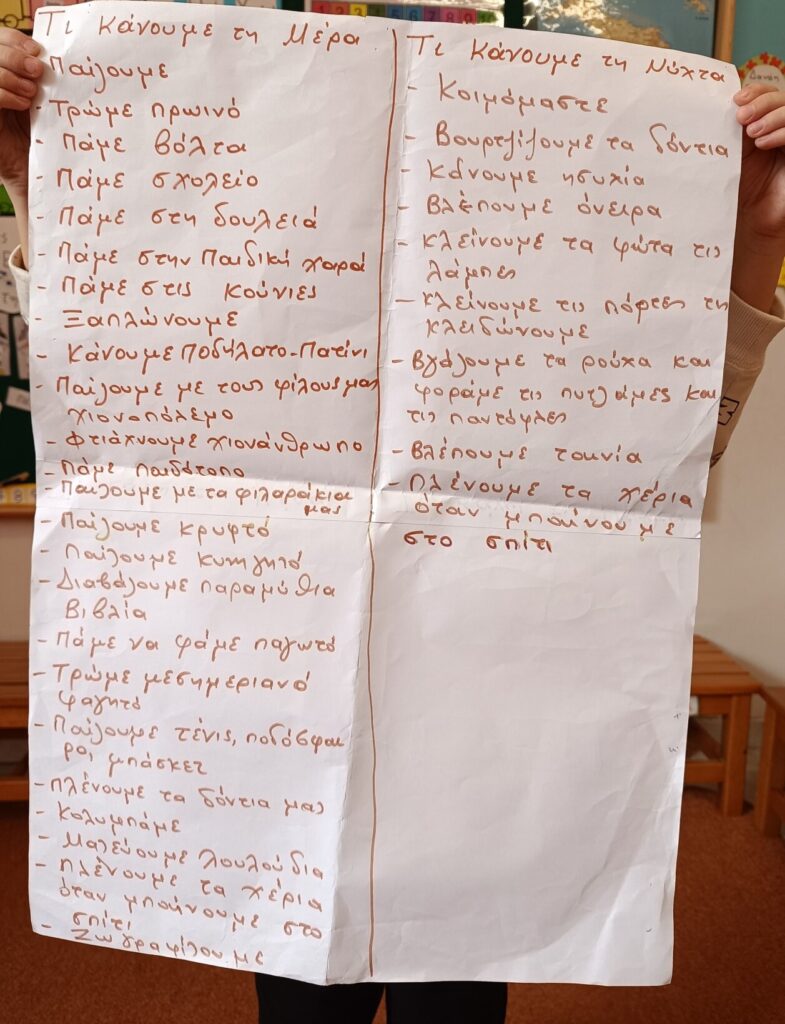 Τι κάνουμε τη Μέρα
Παίζουμε
- Τρώμε πρωινό
- Πάμε βόλτα
- Πάμε σχολείο
- Πάμε στη δουλειά
- Πάμε στην Παιδική χαρά
- Πάμε στις κούνιες
- Ξαπλώνουμε
- Κάνουμε Ποδήλατο-Πατίνι
- Παίζουμε με τους φίλους μας
χιονοπόλεμο
- Φτιάχνουμε χιονάνθρωπο
- Πάμε παιδότοπο
- Παίζουμε με τα φιλαράκια
μας
- Παίζουμε κρυφτό
- Παίζουμε κυνηγητό
- Διαβάζουμε παραμύθια
Βιβλία
- Πάμε να φάμε παγωτό
- Τρώμε μεσημεριανό
φαγητό
- Παίζουμε τένις, ποδόσφαι
ρο, μπάσκετ
- Πλένουμε τα δόντια μας
- Κολυμπάμε
- Μαζεύουμε λουλούδια
- Πλένουμε τα χέρια
όταν μπαίνουμε στο
σπίτι
- Ζωγραφίζουμε
Τι κάνουμε τη Νύχτα
- Κοιμόμαστε
- Βουρτζίζουμε τα δόντια
- Κάνουμε ησυχία
- Βλέπουμε όνειρα
- Κλείνουμε τα φώτα τις
λάμπες
- Κλείνουμε τις πόρτες τις
κλειδώνουμε
- Βγάζουμε τα ρούχα και
φοράμε τις πυτζάμες και
τις παντόφλες
- Βλέπουμε ταινία
- Πλένουμε τα χέρια
όταν μπαίνουμε
στο σπίτι